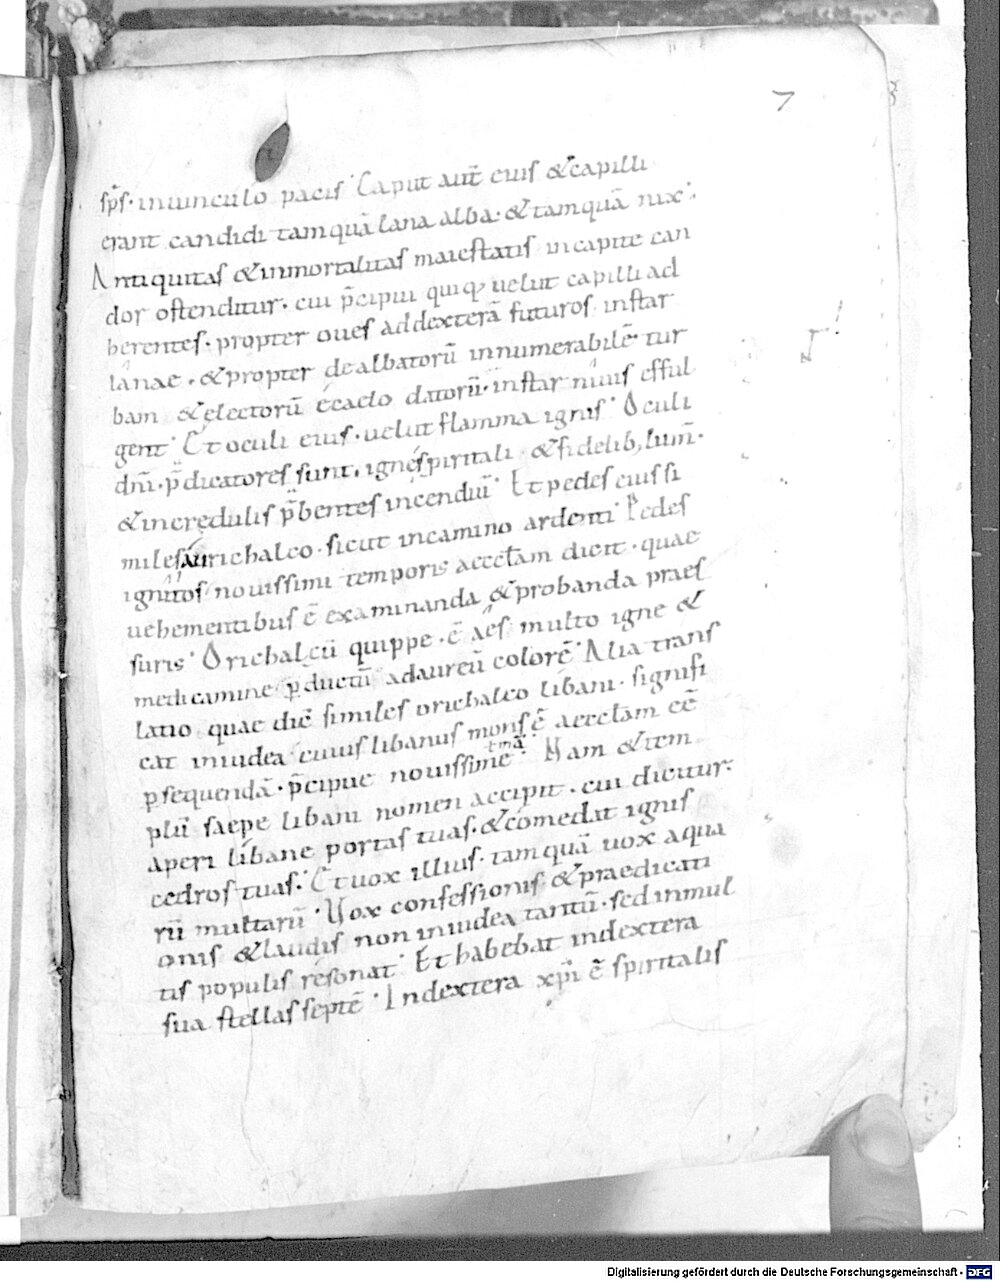 7
sp̄s· inuinculo pacis· Caput aut̄ eius &capilli
erant candidi tamquā lana alba· &tamquā nix·
Antiquitas &inmortalitas maiestatis incapite can
dor ostenditur· cui p̄cipui quiq; uelut capilli ad
herentes· propter oues addexterā futuros instar
lanae· &propter dealbatorū innumerabilē tur
bam &electorū ecaelo datorū· instar niuis efful
gent· Et oculi eius· uelut flamma ignis· Oculi
dn̄i· p̄dicatores sunt· ignespiritali· &fidelib; lum̄·
&incredulis p̄bentes incendiū· Et pedes eius si
miles aurichalco· sicut incamino ardenti· Pedes
ignitos nouissimi temporis aeccłam dicit· quae
uehementibus ē examinanda &probanda pres
suris· Orichalcū quippe· ē aes multo igne &
medicamine p̄ductū adaureū colorē· Alia trans
latio quae dic̄ similes orichalco libani· signifi
cat iniudea cuius libanus mons ē aeccłam eē
p̱sequendā· p̄cipue nouissimē· Nam &tem
tmā
plū saepe libani nomen accipit· cui dicitur·
aperi libane portas tuas· &comedat ignis
cedros tuas· Et uox illius· tamquā uox aqua
rū multarū· Uox confessionis &praedicati
onis &laudis non iniudea tantū· sed inmul
tis populis resonat· Et habebat indextera
sua stellas septē· Indextera xp̄i ē spiritalis
Digitalisierung gefördert durch die Deutsche Forschungsgemeinschaft - DFG